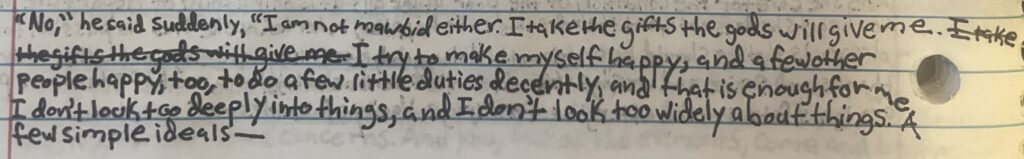 "No," he said suddenly, "I am not mowbid either. I take the gifts the gods will give me. I take
the gifts the gods will give me. I try to make myself happy, and a few other
people happy, too, to do a few little duties decently, and that is enough for me.
I don't look too deeply into things, and I don't look too widely about things. A
few simple ideals—